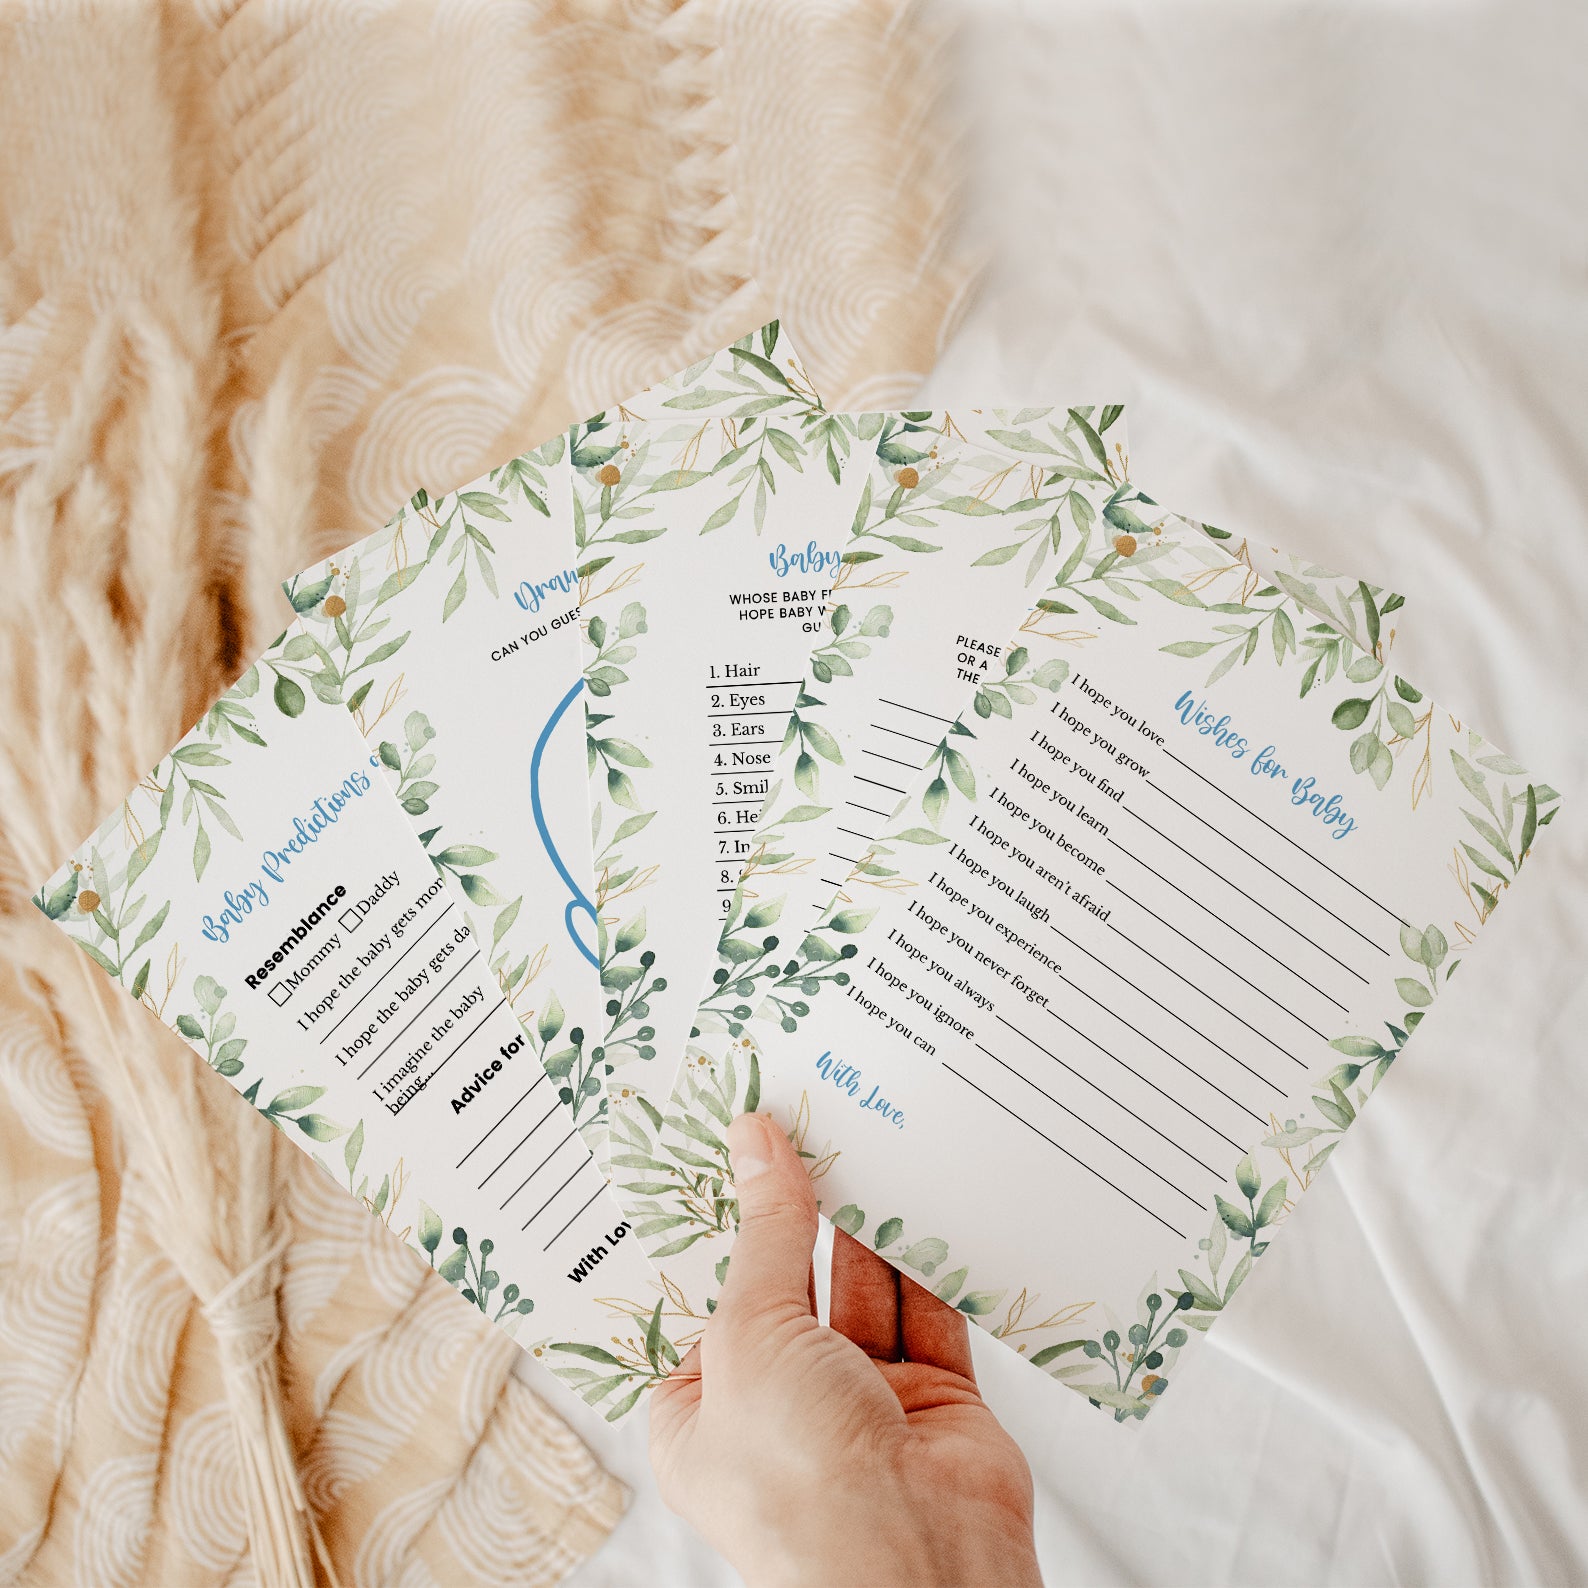 Baby Predictions
Resemblance
Mommy Daddy
I hope the baby gets
I hope the baby gets
I imagine the baby
being...
Advice for
With
CAN YOU
Baby
WHOSE BABY
HOPE BABY
1. Hair
2. Eyes
3. Ears
4. Nose
5.
6.
7.
8.
9
PLEASE
OR A
THE
Wishes for Baby
I hope you love
I hope you grow
I hope you find
I hope you learn
I hope you become
I hope you aren't afraid
I hope you laugh
I hope you experience
I hope you never forget
I hope you always
I hope you ignore
I hope you can
With Love,